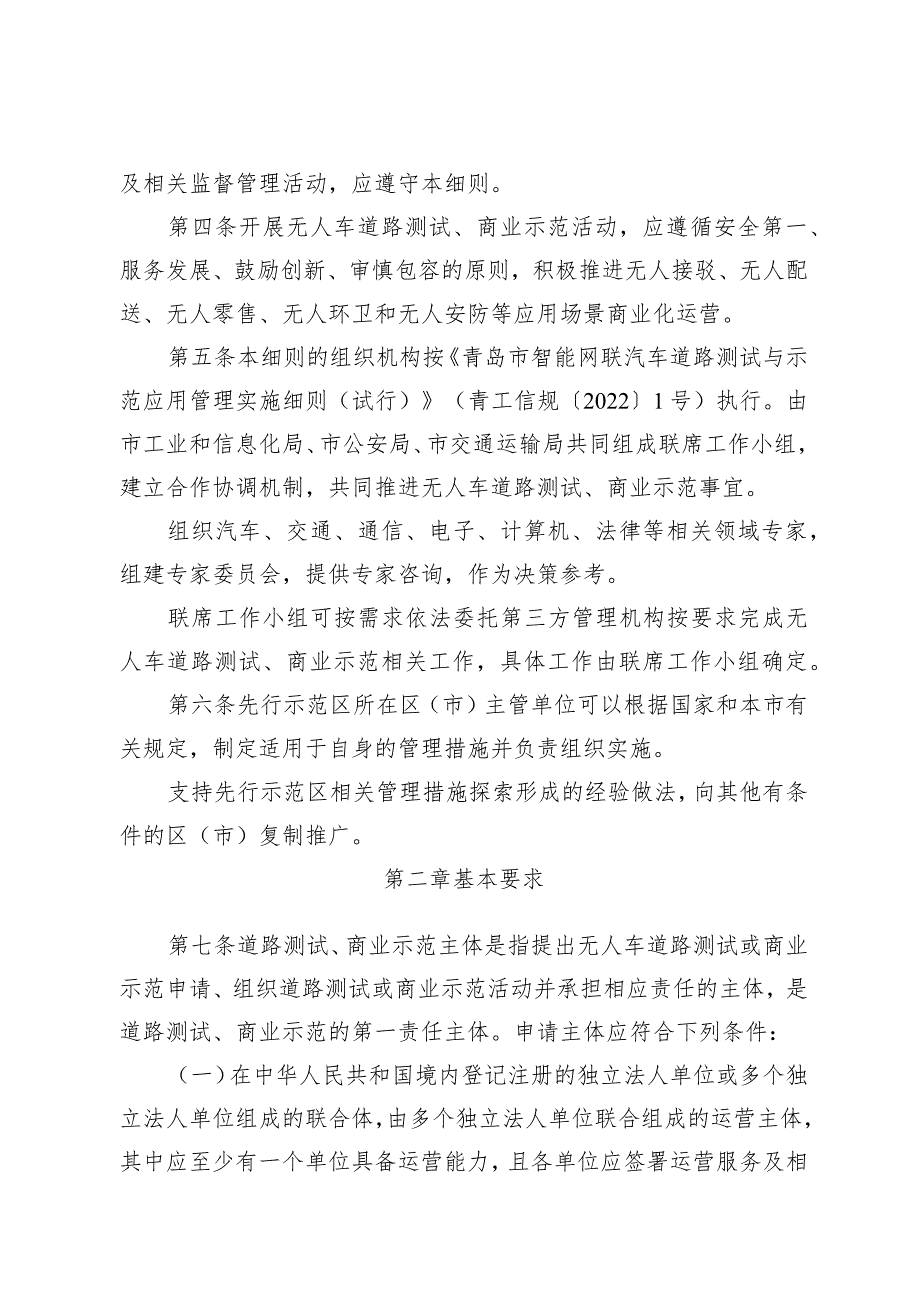 及相关监督管理活动，应遵守本细则。
第四条开展无人车道路测试、商业示范活动，应遵循安全第一、
服务发展、鼓励创新、审慎包容的原则，积极推进无人接驳、无人配
送、无人零售、无人环卫和无人安防等应用场景商业化运营。
第五条本细则的组织机构按《青岛市智能网联汽车道路测试与示
范应用管理实施细则（试行）》（青工信规〔2022〕1 号）执行。由
市工业和信息化局、市公安局、市交通运输局共同组成联席工作小组，
建立合作协调机制，共同推进无人车道路测试、商业示范事宜。
组织汽车、交通、通信、电子、计算机、法律等相关领域专家，
组建专家委员会，提供专家咨询，作为决策参考。
联席工作小组可按需求依法委托第三方管理机构按要求完成无
人车道路测试、商业示范相关工作，具体工作由联席工作小组确定。
第六条先行示范区所在区（市）主管单位可以根据国家和本市有
关规定，制定适用于自身的管理措施并负责组织实施。
支持先行示范区相关管理措施探索形成的经验做法，向其他有条
件的区（市）复制推广。
第二章基本要求
第七条道路测试、商业示范主体是指提出无人车道路测试或商业
示范申请、组织道路测试或商业示范活动并承担相应责任的主体，是
道路测试、商业示范的第一责任主体。申请主体应符合下列条件：
（一）在中华人民共和国境内登记注册的独立法人单位或多个独
立法人单位组成的联合体，由多个独立法人单位联合组成的运营主体，
其中应至少有一个单位具备运营能力，且各单位应签署运营服务及相